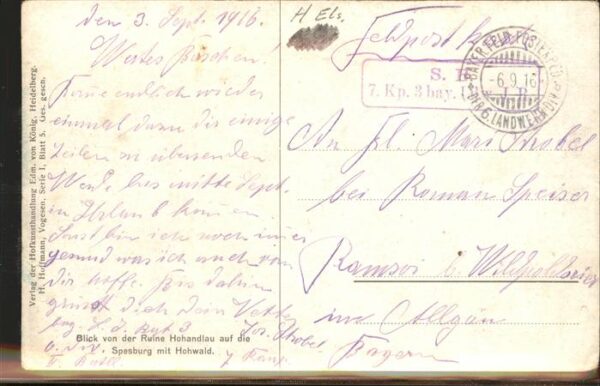 den 3. Sept. 1916.
Wertes Bäschen!
Komme endlich wieder
einmal dazu dir einige
Zeilen zu übersenden
Werde bis mitte Sept.
in Urlaub kommen
Sonst bin ich noch immer
gesund was ich auch von
dir hoffe. Bis dahin
grüßt dich dein Vetter
Jos. Strobel
6. Div.
7 Komp.
Blick von der Ruine Hohandlau auf die
Spesburg mit Hohwald.
Verlag der Hofkunsthandlung Edm. von König, Heidelberg.
H. Hoffmann, Vogesen, Serie I, Blatt 5. Ges. gesch.
H Els.
Feldpostkarte
S. B.
7. Kp. 3 bay.
BAYER. FELD-POSTEXPED.
-6.9.16
DER 6. LANDWEHR DIV.
An Frl. Mari Strobel
bei Roman Speiser
Ramsoi b. Wildpoldsried
im Allgäu
Bayern